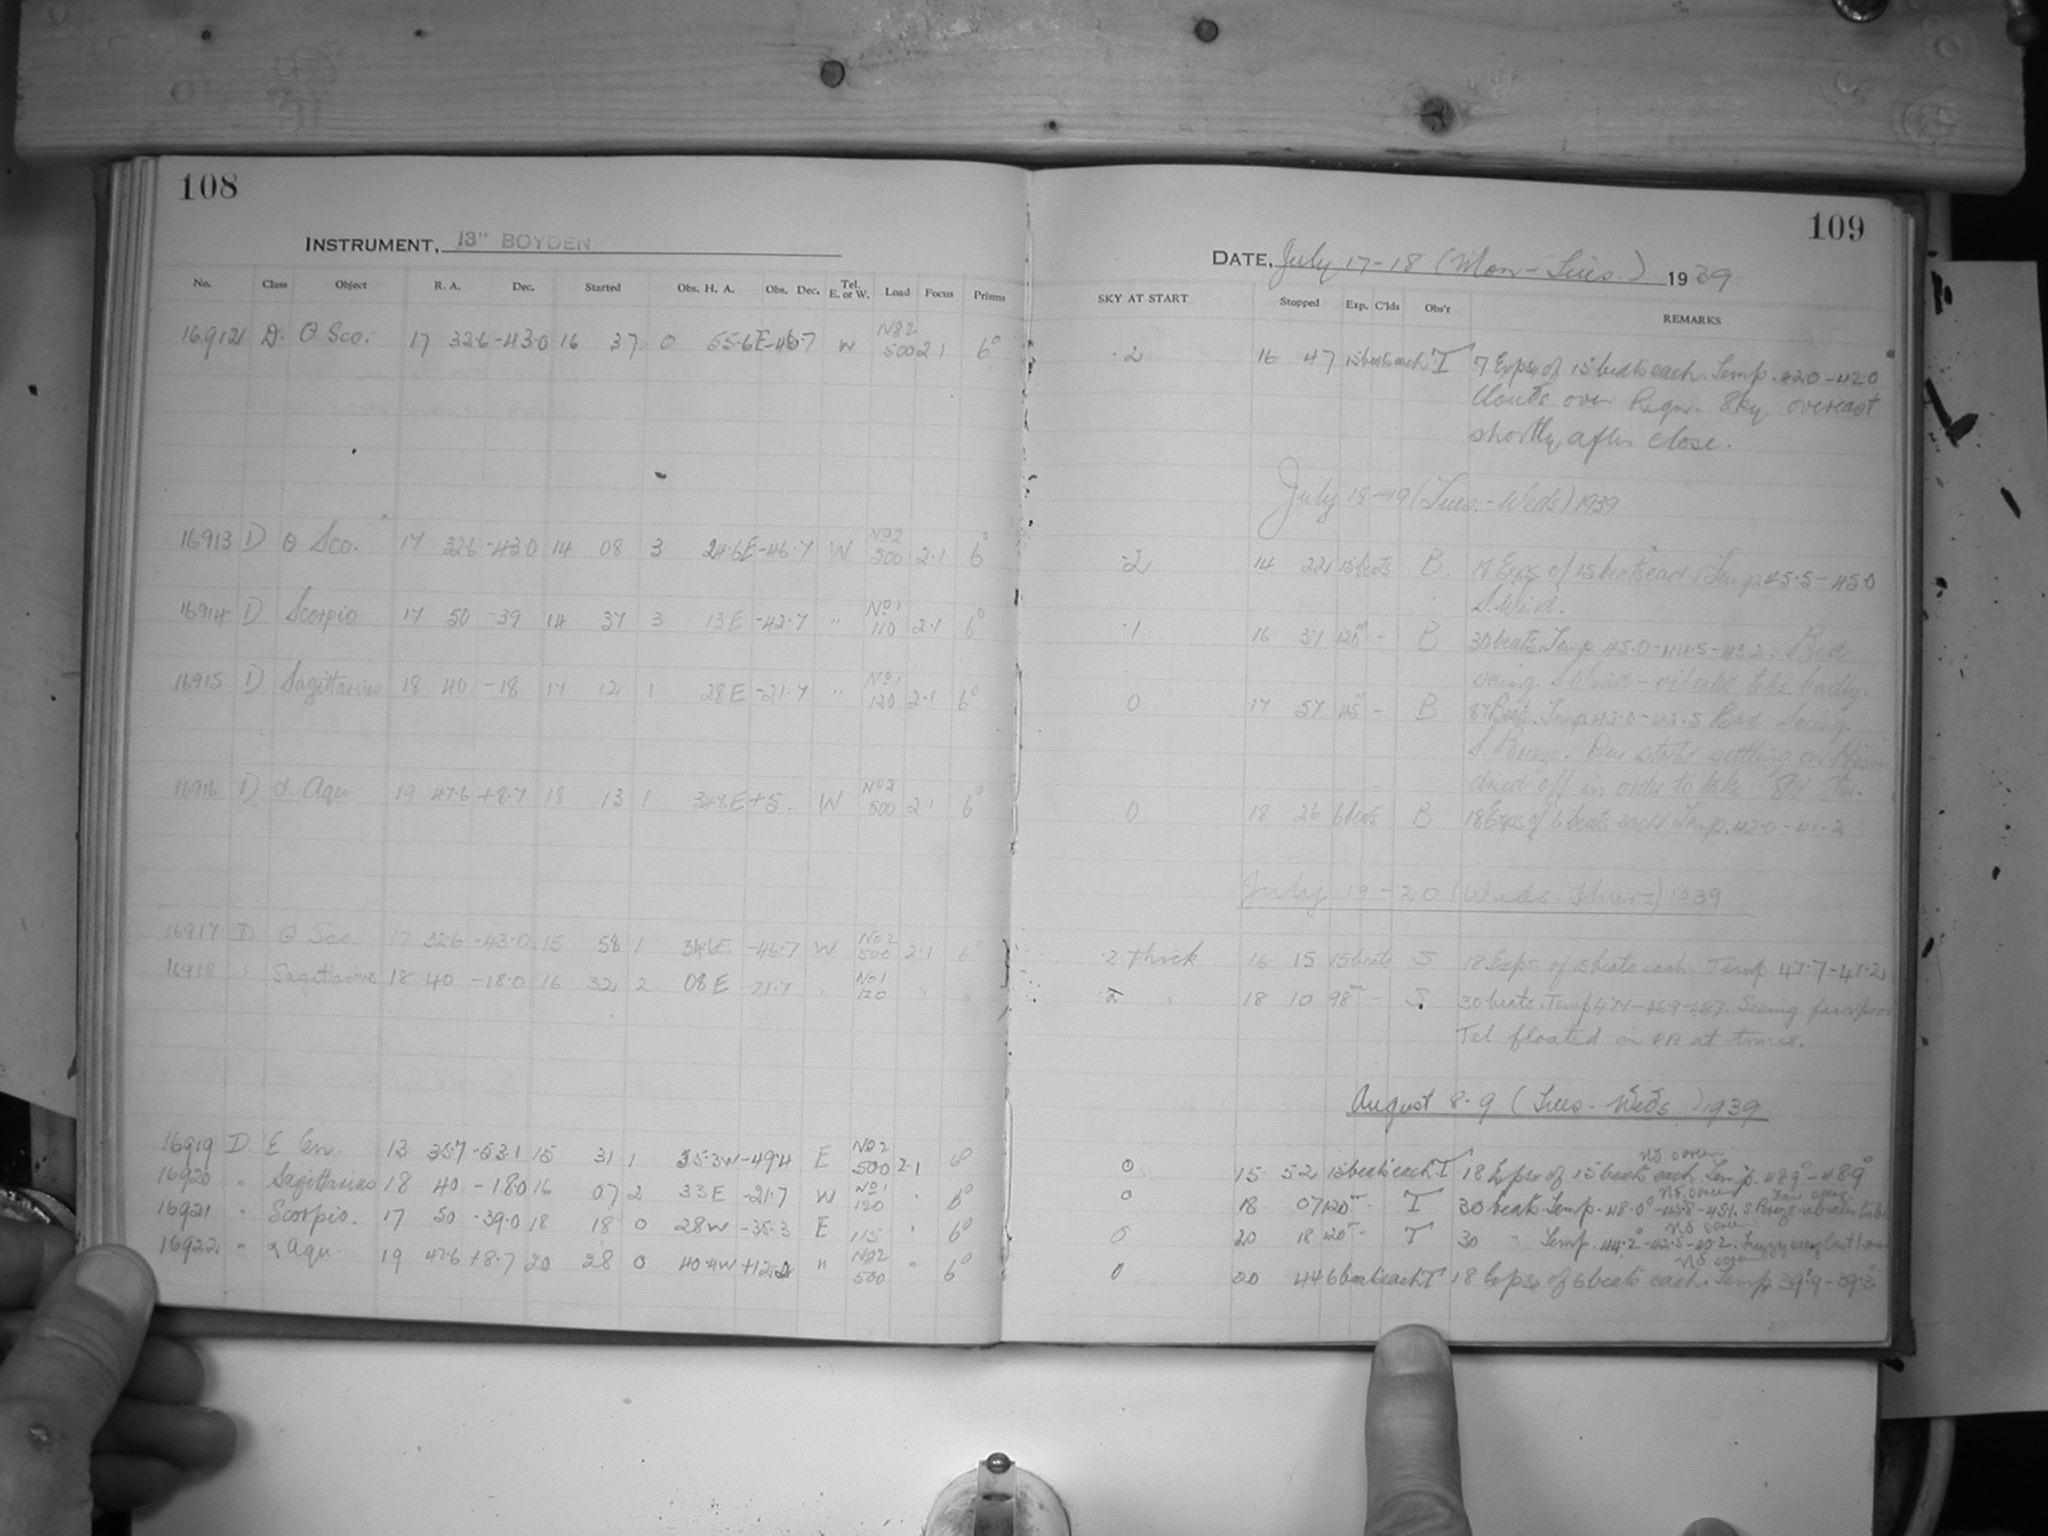 108
INSTRUMENT, 13" BOYDEN
No. Class Object R. A. Dec. Started Obs. H. A. Obs. Dec. Tel. E. or W. Load Focus Prisms
16912 D. θ Sco. 17 32.6 -43.0 16 37 0 55.6E -46.7 W No2 500 2.1 6°
16913 D θ Sco. 17 32.6 -43.0 14 08 3 24.6E -46.7 W No2 500 2.1 6°
16914 D Scorpio 17 50 -39 14 37 3 13E -42.7 " No1 110 2.1 6°
16915 D Sagittarius 18 40 -18 17 12 1 28E -21.7 " No1 120 2.1 6°
16916 D α Aqu 19 47.6 +8.7 18 13 1 E +5. W No2 500 2.1 6°
16917 D θ Sco. 17 32.6 -43.0 15 58 1 34.6E -46.7 W No2 500 2.1 6°
16918 " Sagittarius 18 40 -18.0 16 32 2 08E -21.7 " No1 120 " "
16919 D. E Cen. 13 35.7 -53.1 15 31 1 35.3W -49.4 E No2 500 2.1 6°
16920 " Sagittarius 18 40 -18.0 16 07 2 33E -21.7 W No1 120 " 6°
16921 " Scorpio. 17 50 -39.0 18 18 0 28W -35.3 E 115 " 6°
16922 " α Aqu. 19 47.6 +8.7 20 28 0 40.4W " No2 500 " 6°
109
DATE, July 17-18 (Mon-Tues.) 1939
SKY AT START Stopped Exp. C'lds Obs'r REMARKS
.2 16 47 15 beats each T 7 Exps of 15 beats each. Temp. 42.0-42.0
Clouds over Regn. Sky overcast
shortly after close.
July 18-19 (Tues.-Weds) 1939
.2 14 22 15 beats B. 18 Exps of 15 beats each Temp 45.5-45.0
S. Wind.
.1 16 37 120m - B 30 beats. Temp 45.0-44.5-43.2. Bad
seeing. S Wind - vibrated tube badly.
0 17 57 45m - B Beats. Temp 42.0-42.5 Bad Seeing.
S. Breeze. Dew starts settling on Prism
dried off in order to take Std Star.
0 18 26 6 beats B 18 Exps of 6 beats each Temp. 42.0-41.2
July 19-20 (Weds-Thurs) 1939
.2 thick 16 15 15 beats S 18 Exps of 15 beats each. Temp 47.7-47.2
.2 " 18 10 98m - S. 30 beats. Temp 47.1-46.9-46.7. Seeing fair poor
Tel floated in RA at times.
August 8-9 (Tues.-Weds.) 1939
0 15 52 15 beats each T 18 Exps of 15 beats each. Temp. 48.9°-48.9°
0 18 07 120m - T 30 beats Temp. 48.0°-45.8-45.1. S. Breeze vibrates tube
0 20 18 120m - T 30 " Temp. 44.2°-42.5-40.2.
0 20 44 6 beats each T 18 Exps of 6 beats each. Temp 39.9-39.3°